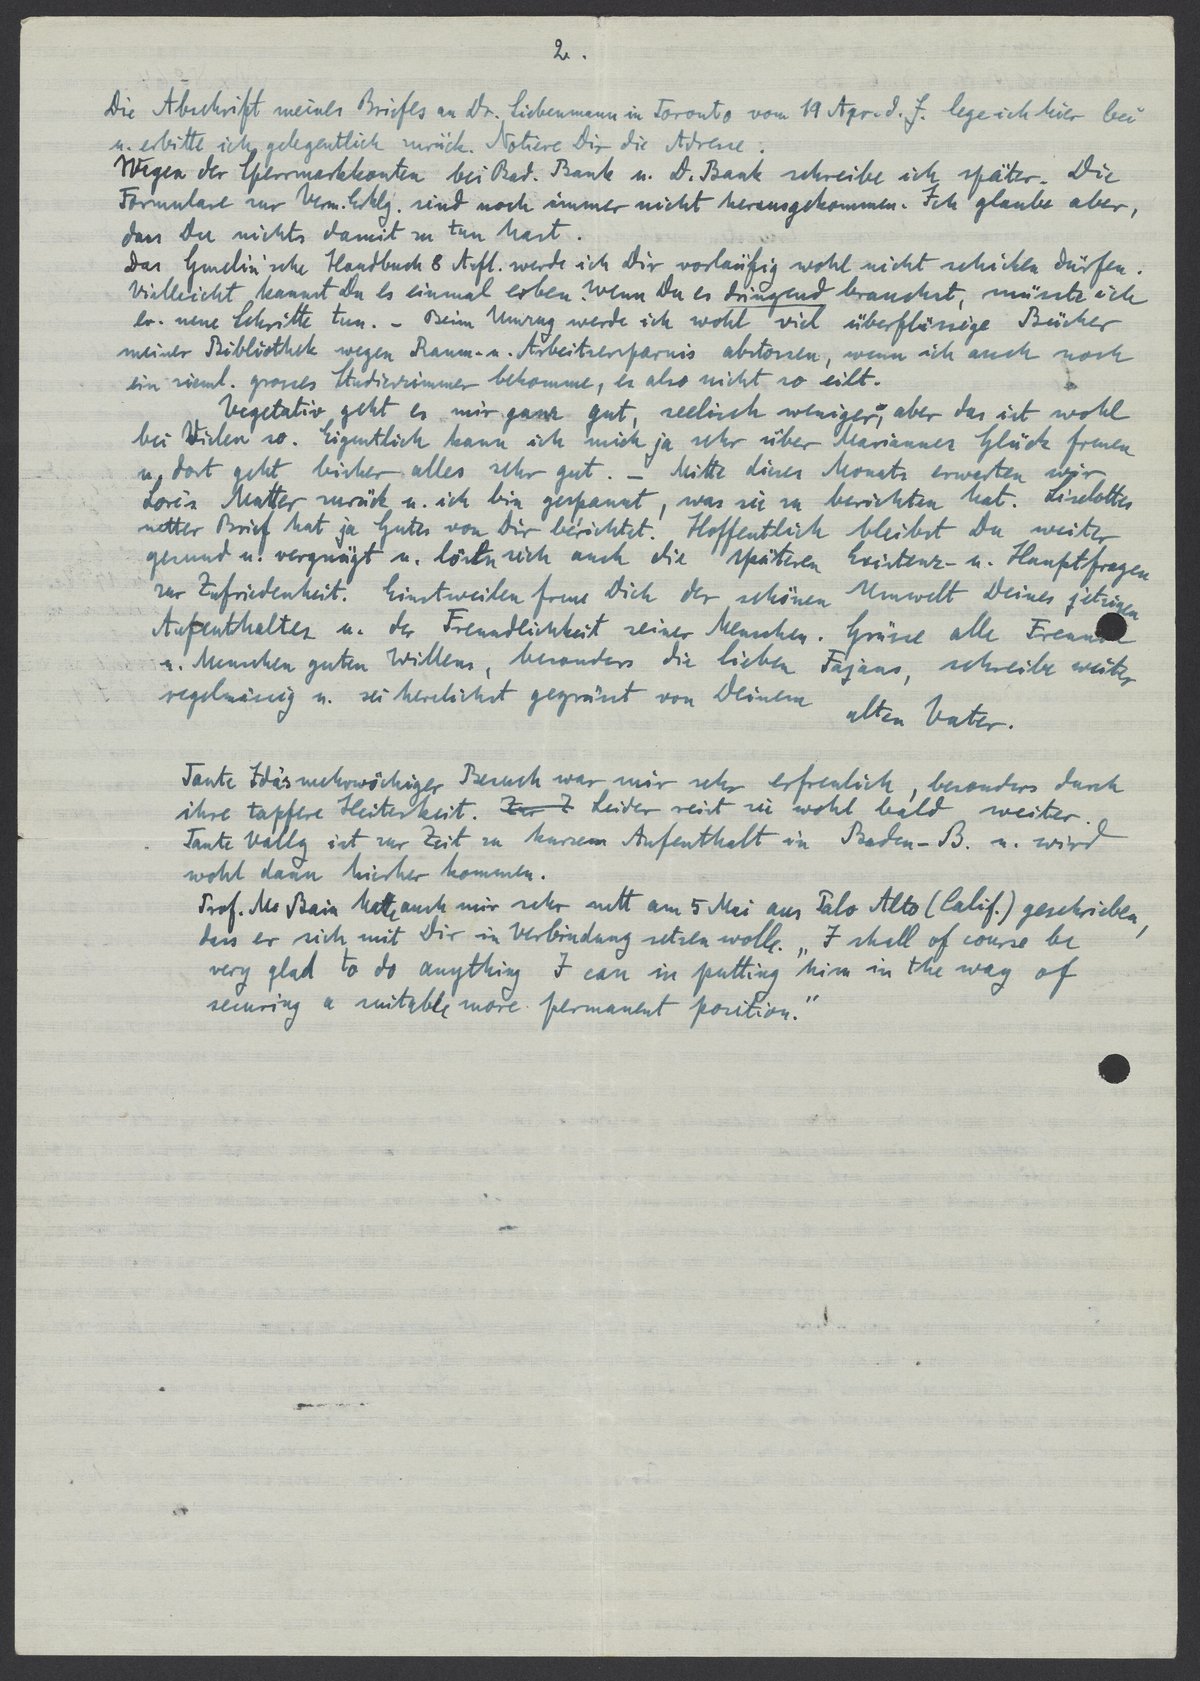 2.
Die Abschrift meines Briefes an Dr. Liebenmann in Toronto vom 19 Apr. d. J. lege ich hier bei
u. erbitte ich gelegentlich zurück. Notiere Dir die Adresse.
Wegen der Sperrmarkkonten bei Bad. Bank u. D. Bank schreibe ich später. Die
Formulare zur Verm. Erklg. sind noch immer nicht herausgekommen. Ich glaube aber,
dass Du nichts damit zu tun hast.
Das Gmelin'sche Handbuch 8 Aufl. werde ich Dir vorläufig wohl nicht schicken dürfen.
Vielleicht kannst Du es einmal erben. Wenn Du es dringend brauchst, müsste ich
ev. neue Schritte tun. – Beim Umzug werde ich wohl viel überflüssige Bücher
meiner Bibliothek wegen Raum- u. Arbeitsersparnis abstossen, wenn ich auch noch
ein zieml. grosses Studierzimmer bekomme, es also nicht so eilt.
Vegetativ geht es mir ganz gut, seelisch weniger, aber das ist wohl
bei Vielen so. Eigentlich kann ich mich ja sehr über Mariannes Glück freuen
u. dort geht bisher alles sehr gut. – Mitte dieses Monats erwarten wir
Lore's Mutter zurück u. ich bin gespannt, was sie zu berichten hat. Liselottes
netter Brief hat ja Gutes von Dir berichtet. Hoffentlich bleibst Du weiter
gesund u. vergnügt u. lösen sich auch die späteren Existenz- u. Hauptfragen
zur Zufriedenheit. Einstweilen freue Dich der schönen Umwelt Deines jetzigen
Aufenthaltes u. der Freundlichkeit seiner Menschen. Grüsse alle Freunde
u. Menschen guten Willens, besonders die lieben Fajans, schreibe weiter
regelmässig u. sei herzlichst gegrüsst von Deinem
alten Vater.
Tante Ida's mehrwöchiger Besuch war mir sehr erfreulich, besonders durch
ihre tapfere Heiterkeit. Zur Z Leider reist sie wohl bald weiter.
Tante Vally ist zur Zeit zu kurzem Aufenthalt in Baden-B. u. wird
wohl dann hierher kommen.
Prof. Mc Bain hat auch mir sehr nett am 5 Mai aus Palo Alto (Calif.) geschrieben,
dass er sich mit Dir in Verbindung setzen wolle. „I shall of course be
very glad to do anything I can in putting him in the way of
securing a suitable more permanent position."